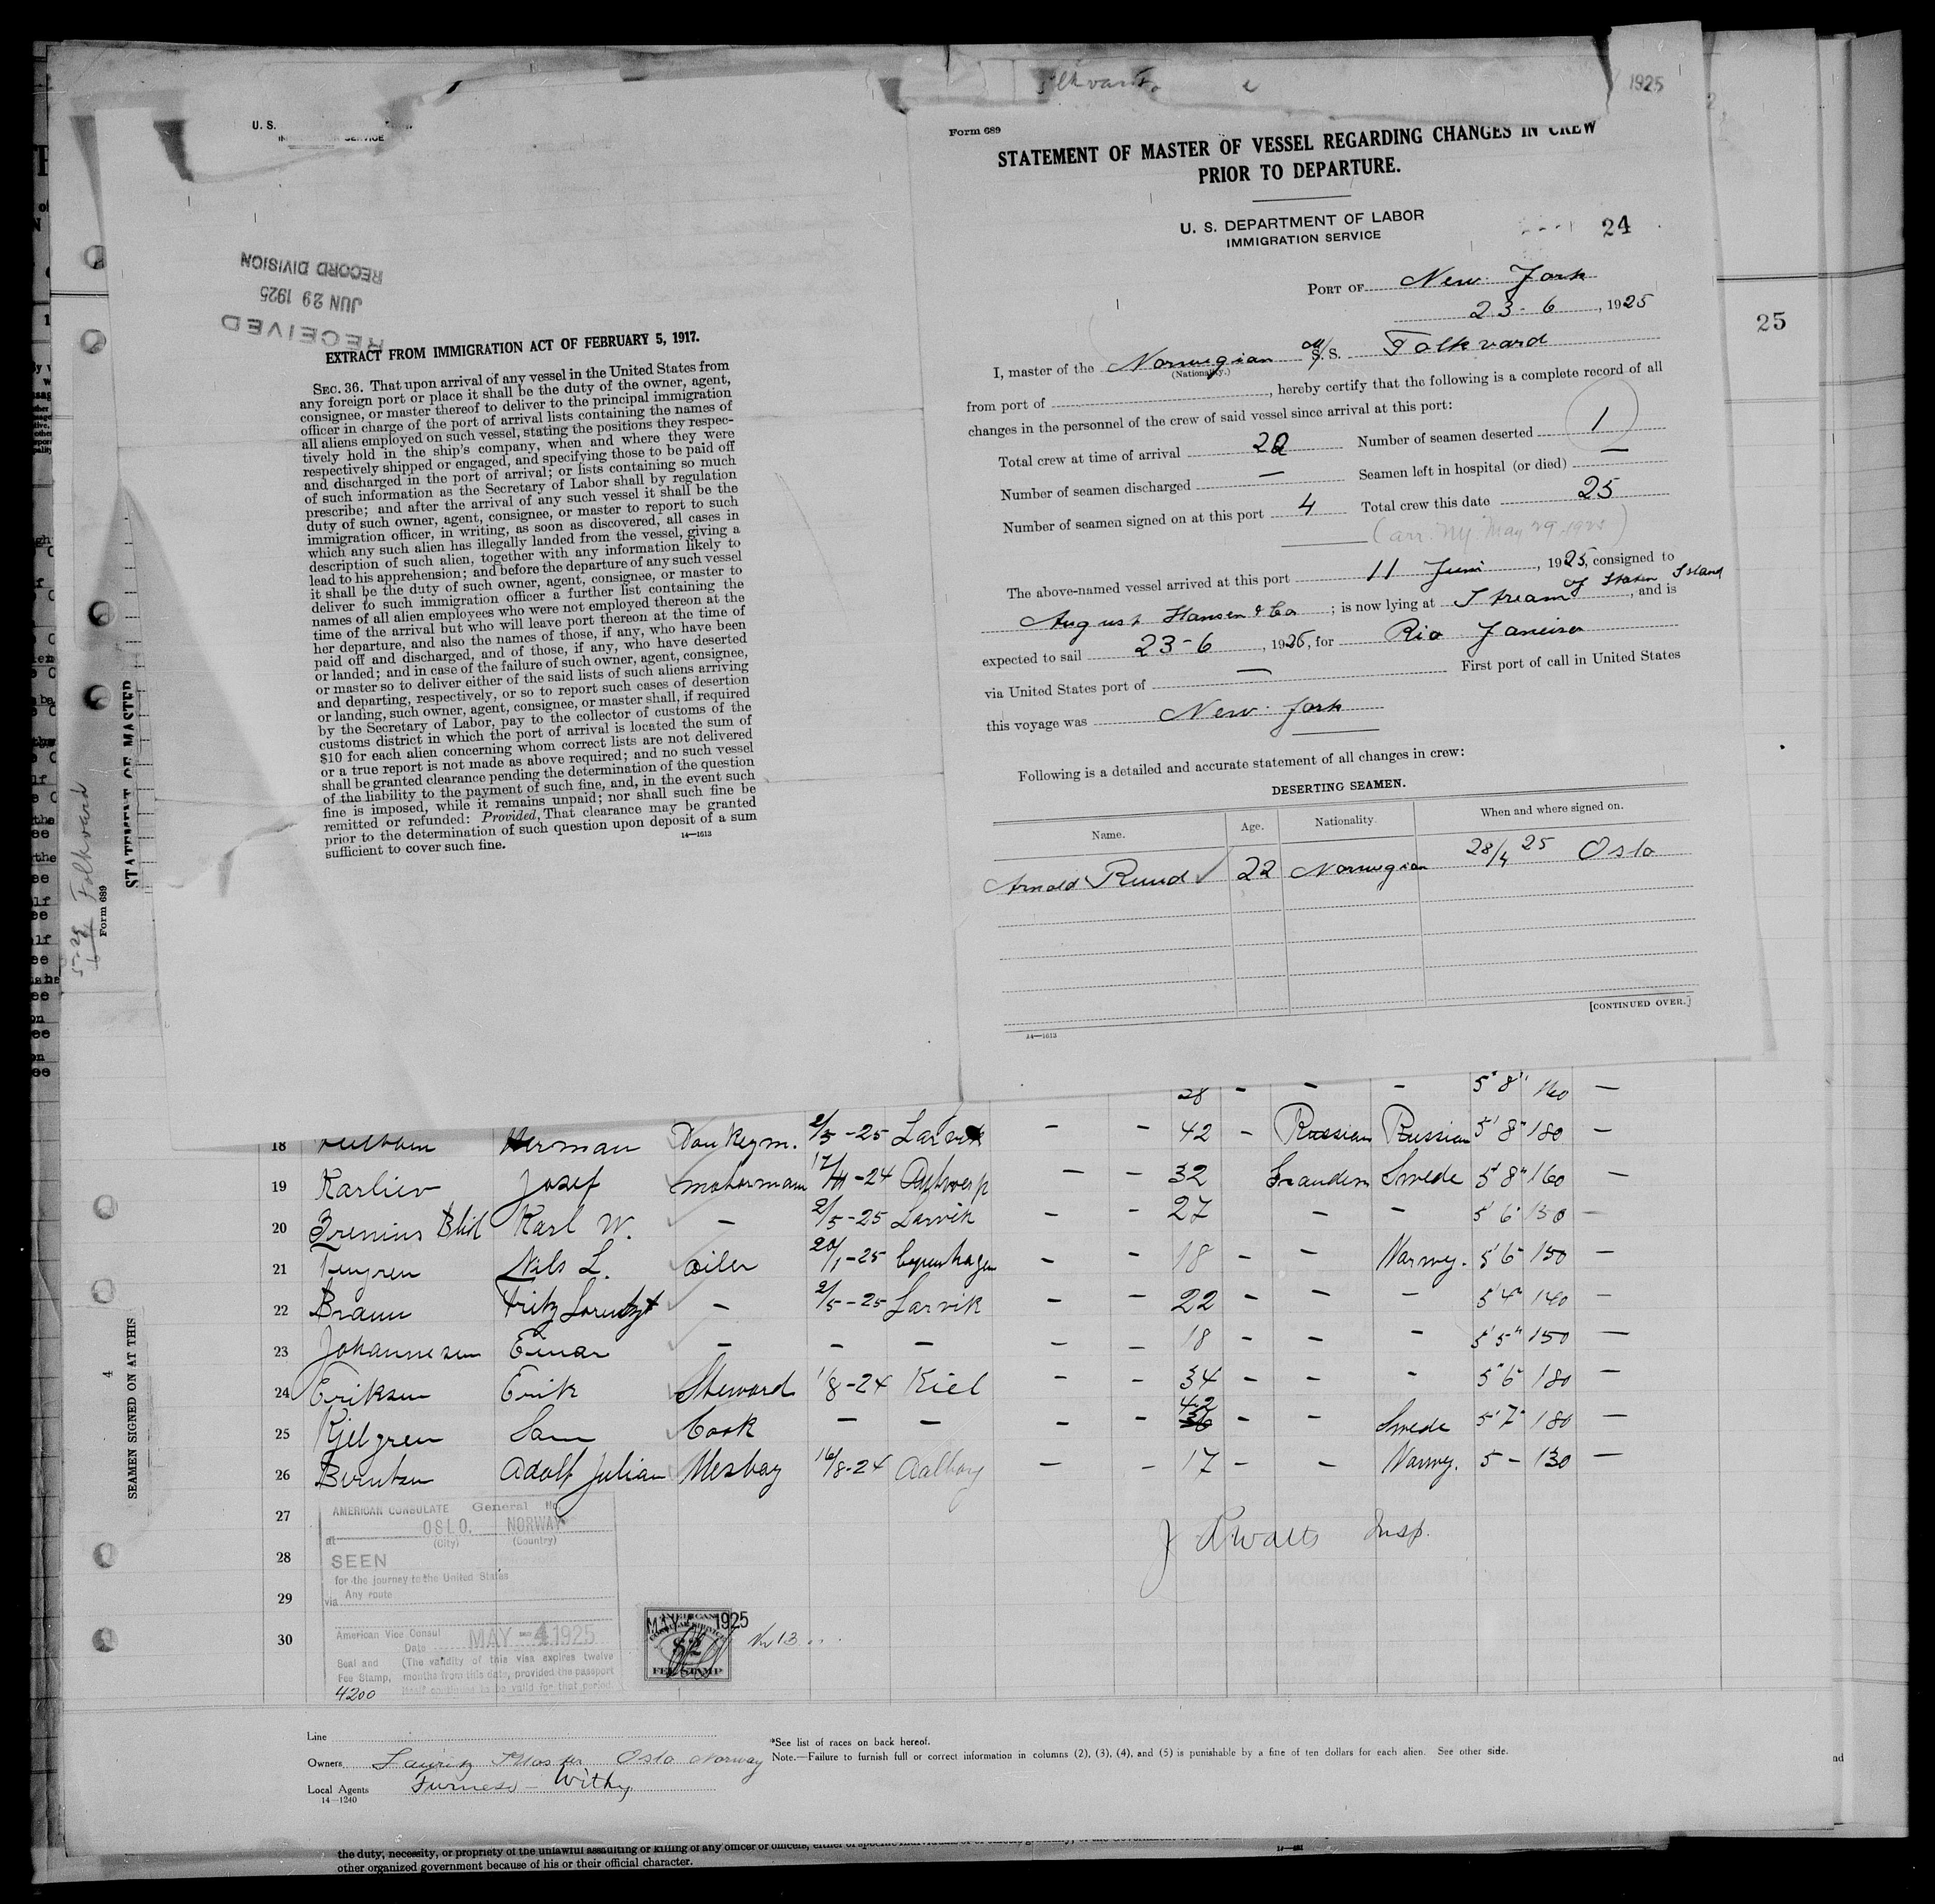 1925
U. S.
SERVICE
RECEIVED
JUN 29 1925
RECORD DIVISION
EXTRACT FROM IMMIGRATION ACT OF FEBRUARY 5, 1917.
SEC. 36. That upon arrival of any vessel in the United States from
any foreign port or place it shall be the duty of the owner, agent,
consignee, or master thereof to deliver to the principal immigration
officer in charge of the port of arrival lists containing the names of
all aliens employed on such vessel, stating the positions they respec-
tively hold in the ship's company, when and where they were
respectively shipped or engaged, and specifying those to be paid off
and discharged in the port of arrival; or lists containing so much
of such information as the Secretary of Labor shall by regulation
prescribe; and after the arrival of any such vessel it shall be the
duty of such owner, agent, consignee, or master to report to such
immigration officer, in writing, as soon as discovered, all cases in
which any such alien has illegally landed from the vessel, giving a
description of such alien, together with any information likely to
lead to his apprehension; and before the departure of any such vessel
it shall be the duty of such owner, agent, consignee, or master to
deliver to such immigration officer a further list containing the
names of all alien employees who were not employed thereon at the
time of the arrival but who will leave port thereon at the time of
her departure, and also the names of those, if any, who have been
paid off and discharged, and of those, if any, who have deserted
or landed; and in case of the failure of such owner, agent, consignee,
or master so to deliver either of the said lists of such aliens arriving
and departing, respectively, or so to report such cases of desertion
or landing, such owner, agent, consignee, or master shall, if required
by the Secretary of Labor, pay to the collector of customs of the
customs district in which the port of arrival is located the sum of
$10 for each alien concerning whom correct lists are not delivered
or a true report is not made as above required; and no such vessel
shall be granted clearance pending the determination of the question
of the liability to the payment of such fine, and, in the event such
fine is imposed, while it remains unpaid; nor shall such fine be
remitted or refunded: Provided, That clearance may be granted
prior to the determination of such question upon deposit of a sum
sufficient to cover such fine.
14—1613
Form 689
STATEMENT OF MASTER OF VESSEL REGARDING CHANGES IN CREW
PRIOR TO DEPARTURE.
U. S. DEPARTMENT OF LABOR
IMMIGRATION SERVICE
24
PORT OF New York
23-6, 1925
I, master of the Norwegian S. S. Folkvard
(Nationality.)
from port of , hereby certify that the following is a complete record of all
changes in the personnel of the crew of said vessel since arrival at this port:
Total crew at time of arrival 22 Number of seamen deserted 1
Number of seamen discharged — Seamen left in hospital (or died) —
Number of seamen signed on at this port 4 Total crew this date 25
(arr. NY. May 29-1925)
The above-named vessel arrived at this port 11 Juni, 1925, consigned to
August Hansen & Co ; is now lying at Stream of Staten Island, and is
expected to sail 23-6, 1925, for Rio Janeiro
via United States port of — First port of call in United States
this voyage was New York
Following is a detailed and accurate statement of all changes in crew:
DESERTING SEAMEN.
Name. Age. Nationality. When and where signed on.
Arnold Ruud 22 Norwegian 28/4 25 Oslo
[CONTINUED OVER.]
14—1613
25
5-29 Folkvard
Form 689
STATEMENT OF MASTER
4
SEAMEN SIGNED ON AT THIS
38 - - - 5' 8" 160 —
18 Herman Donkeym. 2/5-25 Larvik — - 42 - Russian Russian 5' 8" 180 —
19 Karliev Josef motorman 24 — - 32 Swede 5' 8" 160 —
20 Karl W. — 2/5-25 Larvik — - 27 - - 5' 6" 150 —
21 Nils L. oiler 20/1-25 Copenhagen — - 18 - - Norwg. 5' 6" 150 —
22 Braun Fritz Lorentz — 2/5-25 Larvik — - 22 - - - 5' 4" 140 —
23 Johannesen Einar — — — — - 18 - - - 5' 5" 150 —
24 Eriksen Erik Steward 1/8-24 Kiel — - 34 - - - 5' 6" 180 —
25 Kjelgren Sam Cook — — — - 42 - - Swede 5' 7" 180 —
26 Berntsen Adolf Julian Messboy 16/8-24 Aalborg — - 17 - - Norwg. 5 - 130 —
27
28
29
30
AMERICAN CONSULATE General No.
at OSLO, NORWAY
(City) (Country)
SEEN
for the journey to the United States
via Any route
American Vice Consul
Date MAY -4 1925
Seal and (The validity of this visa expires twelve
Fee Stamp, months from this date, provided the passport
itself continues to be valid for that period.
4200
MAY 1925
AMERICAN
CONSULAR SERVICE
$2
FEE STAMP
No 13
J A Watts Insp.
Line
Owners Lauritz Kloster Oslo Norway
Local Agents Furness - Withy
14—1240
*See list of races on back hereof.
Note.—Failure to furnish full or correct information in columns (2), (3), (4), and (5) is punishable by a fine of ten dollars for each alien. See other side.
the duty, necessity, or propriety of the unlawful assaulting or killing of any officer or officers,
other organized government because of his or their official character.